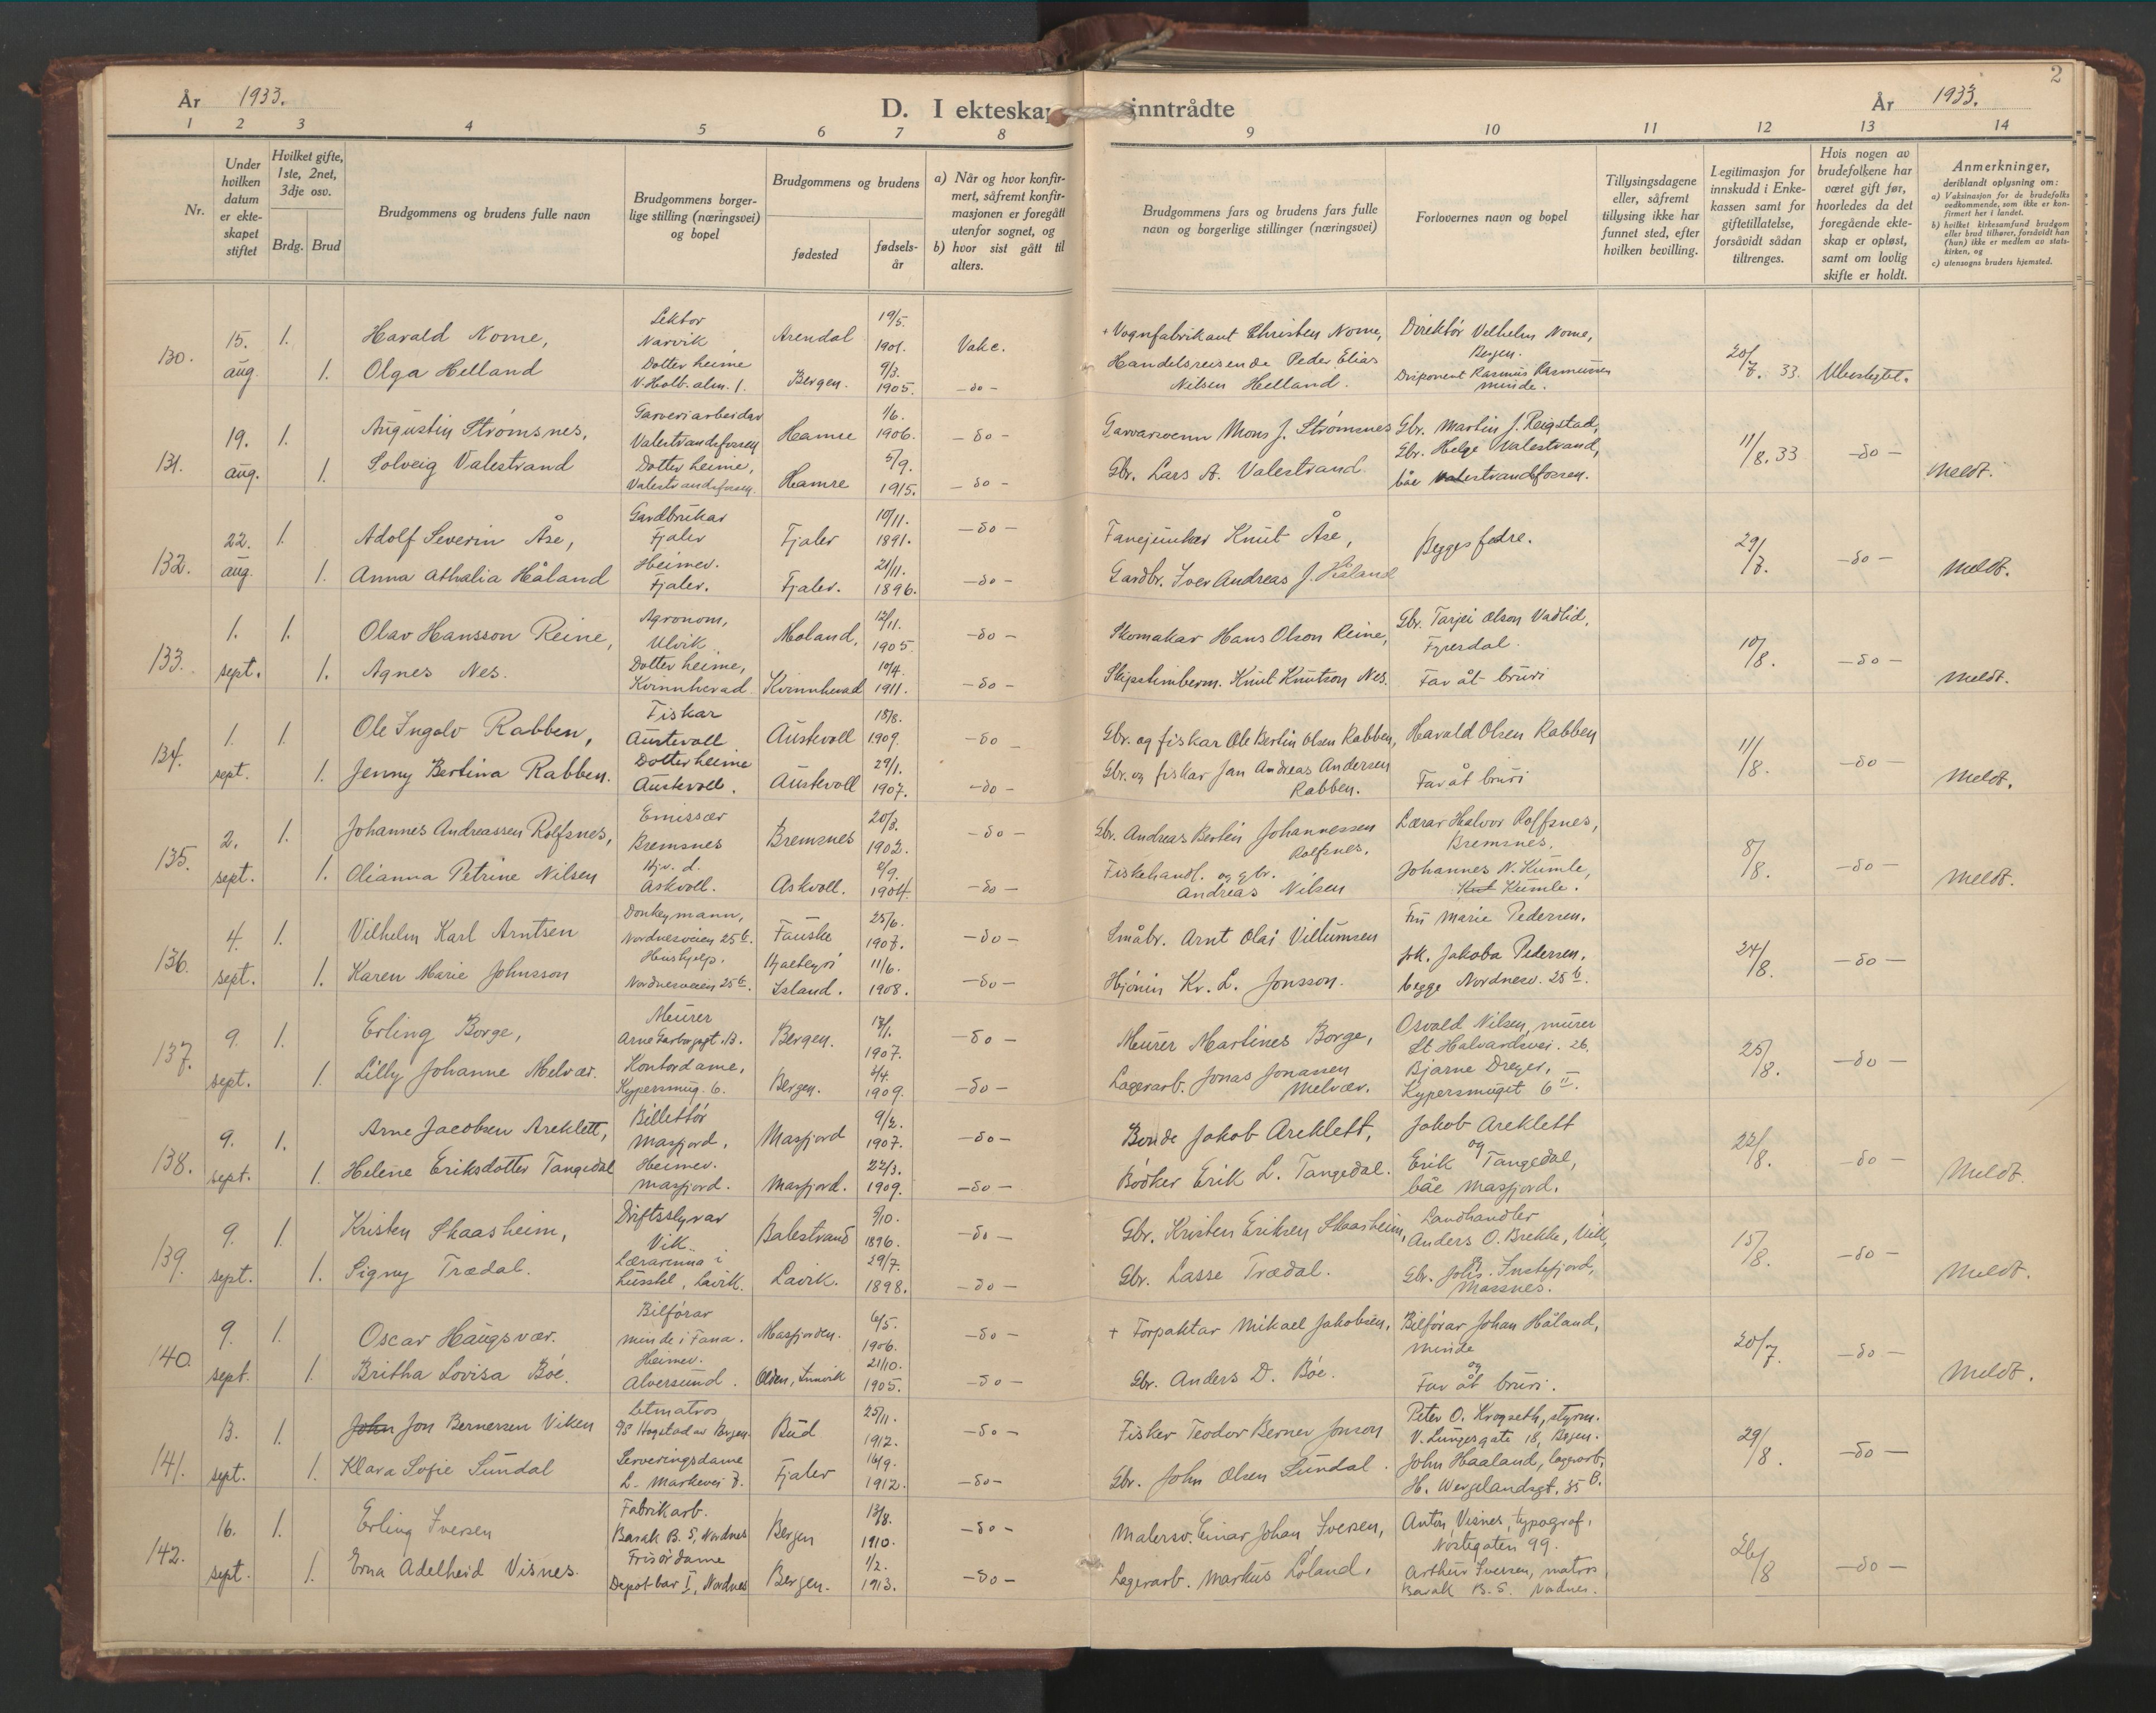 År 1933.
D. I ekteskap inntrådte
År 1933.
2
1 2 3 4 5 6 7 8 9 10 11 12 13 14
Nr.
Under hvilken datum er ekteskapet stiftet
Hvilket gifte, 1ste, 2net, 3dje osv.
Brdg. Brud
Brudgommens og brudens fulle navn
Brudgommens borgerlige stilling (næringsvei) og bopel
Brudgommens og brudens
fødested
fødselsår
a) Når og hvor konfirmert, såfremt konfirmasjonen er foregått utenfor sognet, og
b) hvor sist gått til alters.
Brudgommens fars og brudens fars fulle navn og borgerlige stillinger (næringsvei)
Forlovernes navn og bopel
Tillysingsdagene eller, såfremt tillysing ikke har funnet sted, efter hvilken bevilling.
Legitimasjon for innskudd i Enkekassen samt for giftetillatelse, forsåvidt sådan tiltrenges.
Hvis nogen av brudefolkene har været gift før, hvorledes da det foregående ekteskap er opløst, samt om lovlig skifte er holdt.
Anmerkninger, deriblandt oplysning om:
a) Vaksinasjon for de brudefolks vedkommende, som ikke er konfirmert her i landet.
b) hvilket kirkesamfund brudgom eller brud tilhører, forsåvidt han (hun) ikke er medlem av statskirken, og
c) utensogns bruders hjemsted.
130. 15. aug. 1. Harald Nome, Lektor Narvik Arendal 19/5. 1901. Vake. + Vognfabrikant Christen Nome, Direktør Vilhelm Nome, Bergen. 20/7. 33. Uberygtet.
1. Olga Helland Dotter heime V. Holb. alm. 1. Bergen. 9/3. 1905. -do- Handelsreisende Peder Elias Nilsen Helland. Disponent Rasmus Rasmussen Minde.
131. 19. aug. 1. Augustin Strømsnes, Garveriarbeidar Valestrandsfossen Hamre 1/6. 1906. -do- Garvarsvenn Mons J. Strømsnes Gbr. Martin J. Reigstad, 11/8. 33 -do- Meldt.
1. Solveig Valestrand Dotter heime, Valestrandsfossen. Hamre 5/9. 1915. -do- Gbr. Lars A. Valestrand. Gbr. Helge Valestrand, båe Valestrandsfossen.
132. 22. aug. 1. Adolf Severin Åse, Gardbrukar Fjaler Fjaler 10/11. 1891. -do- Fanejunker Knut Åse, Begges fedre. 29/7. -do- Meldt.
1. Anna Athalia Håland Heimev. Fjaler. Fjaler. 21/11. 1896. -do- Gardbr. Iver Andreas J. Håland
133. 1. sept. 1. Olav Hansson Reine, Agronom, Ulvik Moland, 12/11. 1905. -do- Skomakar Hans Olson Reine, Gbr. Tarjei Olson Vadlid, Fyresdal. 10/8. -do- Meldt.
1. Agnes Nes. Dotter heime, Kvinnherad. Kvinnherad 10/4. 1911. -do- Skipstimberm. Knut Knutson Nes. Far åt bruri
134. 1. sept. 1. Ole Ingolv Rabben, Fiskar Austevoll Austevoll 18/8. 1909. -do- Gbr. og fiskar Ole Bertin Olsen Rabben, Harald Olsen Rabben 11/8. -do- Meldt.
1. Jenny Bertina Rabben. Dotter heime Austevoll. Austevoll 29/1. 1907. -do- Gbr. og fiskar Jan Andreas Andersen Rabben. Far åt bruri
135. 2. sept. 1. Johannes Andreassen Rolfsnes, Emissær Bremsnes Bremsnes 20/3. 1902. -do- Gbr. Andreas Bertin Johannessen Rolfsnes. Lærar Halvor Rolfsnes, Bremsnes. 8/8. -do- Meldt.
1. Olianna Petrine Nilsen Hjv. d. Askvoll. Askvoll. 2/9. 1904. -do- Fiskehandl. og gbr. Andreas Nilsen Johannes N. Kumle, Kumle.
136. 4. sept. 1. Vilhelm Karl Arntsen Donkeymann, Nordnesveien 25 b. Fauske 25/6. 1907. -do- Småbr. Arnt Olai Villumsen Fru Marie Pedersen. 24/8. -do-
1. Karen Marie Johnsson Hushjelp. Nordnesveien 25 b. Island. 11/6. 1908. -do- Hjónin Kr. L. Jonsson. frk. Jakoba Pedersen. begge Nordnesv. 25 b.
137. 9. sept. 1. Erling Borge, Murer Arne Garborgsgt. Bergen. 17/1. 1907. -do- Murer Martines Borge, Osvald Nilsen, murer St. Halvardsvei. 26. 25/8. -do-
1. Lilly Johanne Melvær. Kontordame, Kypersmug. 6. Bergen. 2/4. 1909. -do- Lagerarb. Jonas Jonassen Melvær. Bjarne Dreyer, Kypersmuget 6 II.
138. 9. sept. 1. Arne Jacobsen Areklett, Billettør Masfjord. Masfjord 9/2. 1907. -do- Bonde Jakob Areklett, Jakob Areklett og 22/8. -do- Meldt.
1. Helene Eriksdotter Tangedal Heimev. Masfjord. Masfjord. 22/3. 1909. -do- Bødker Erik L. Tangedal. Erik Tangedal, båe Masfjord.
139. 9. sept. 1. Kristen Skaasheim, Driftsstyrar Vik. Balestrand 9/10. 1896. -do- Gbr. Kristen Eriksen Skaasheim, Landhandler Anders O. Brekke, Vik, 15/8. -do- Meldt.
1. Signy Trædal. Lærarinna i Lavik. Lavik. 29/7. 1898. -do- Gbr. Lasse Trædal. og Gbr. Johs. Instefjord, Massnes.
140. 9. sept. 1. Oscar Haugsvær. Bilførar Minde i Fana. Masfjorden. 6/5. 1906. -do- + Forpaktar Mikael Jakobsen. Bilførar Johan Håland, Minde og 20/7. -do- Meldt.
1. Britha Lovisa Bøe. Heimev. Alversund. Olden, Innvik 21/10. 1905. -do- Gbr. Anders D. Bøe. Far åt bruri.
141. 13. sept. 1. John Jon Bernersen Viken Letmatros Hogstad av Bergen. Bud 25/11. 1912. -do- Fisker Teodor Berner Jonson Peter O. Krogseth, styrm. V. Lungergate 18, Bergen. 29/8. -do-
1. Klara Sofie Sundal Serveringsdame L. Markevei 7. Fjaler 16/9. 1912. -do- Gbr. John Olsen Sundal. John Haaland, lagerarb. H. Wergelandsgt. 35 B.
142. 16. sept. 1. Erling Iversen Fabrikarb. Barak B. 5, Nordnes Bergen 13/8. 1910. -do- Malersv. Einar Johan Iversen, Anton Visnes, typograf. Nøstegaten 99. 26/8 -do-
1. Erna Adelheid Visnes. Frisørdame Depotbar I, Nordnes Bergen. 1/2. 1913. -do- Lagerarb. Markus Loland. Arthur Iversen, matros Barak B. 5. Nordnes.